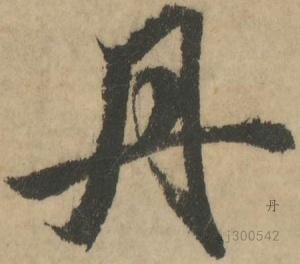 丹
丹
j300542